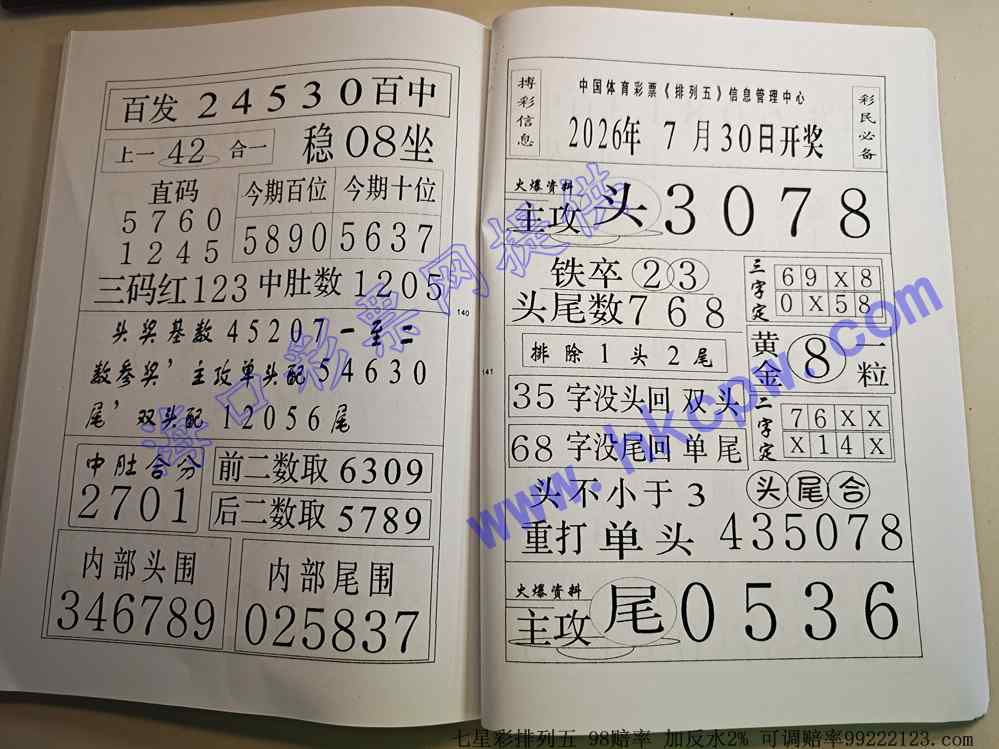 百发 24530 百中
上一 42 合一 稳 08 坐
直码
5760
1245
今期百位 今期十位
5890 5637
三码红 123 中肚数 1205
头奖基数 45207 一至二
数参奖’主攻单头配 54630
尾’双头配 12056 尾
中肚合分
2701
前二数取 6309
后二数取 5789
内部头围
346789
内部尾围
025837
140
141
搏彩信息
中国体育彩票《排列五》信息管理中心
2026年 7月30日开奖
彩民必备
火爆资料
主攻 头 3078
铁卒 23
头尾数 768
三字定
69X8
0X58
排除1头2尾
黄金 8 一粒
35 字没头回 双头
68 字没尾回 单尾
二字定
76XX
X14X
头不小于3 头尾合
重打单头 435078
火爆资料
主攻 尾 0536
海口彩票网提供
www.hkcpw.com
七星彩排列五 98赔率 加反水2% 可调赔率99222123.com